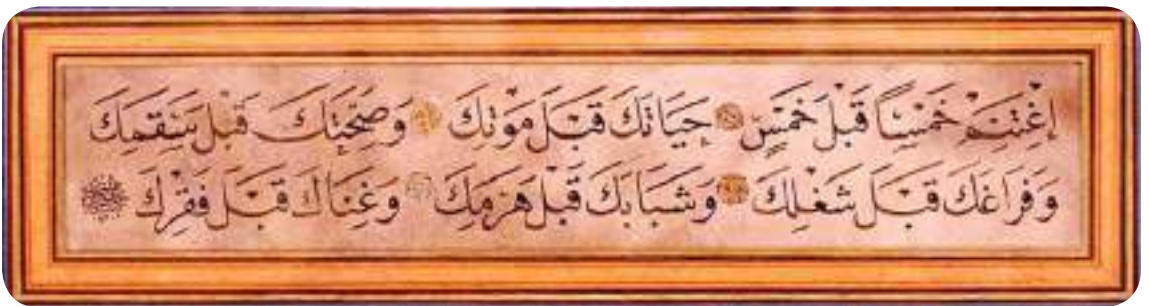 اِغْتَنِمْ خَمْسًا قَبْلَ خَمْسٍ حَيَاتَكَ قَبْلَ مَوْتِكَ وَصِحَّتَكَ قَبْلَ سَقَمِكَ
وَفَرَاغَكَ قَبْلَ شَغْلِكَ وَشَبَابَكَ قَبْلَ هَرَمِكَ وَغِنَاكَ قَبْلَ فَقْرِكَ